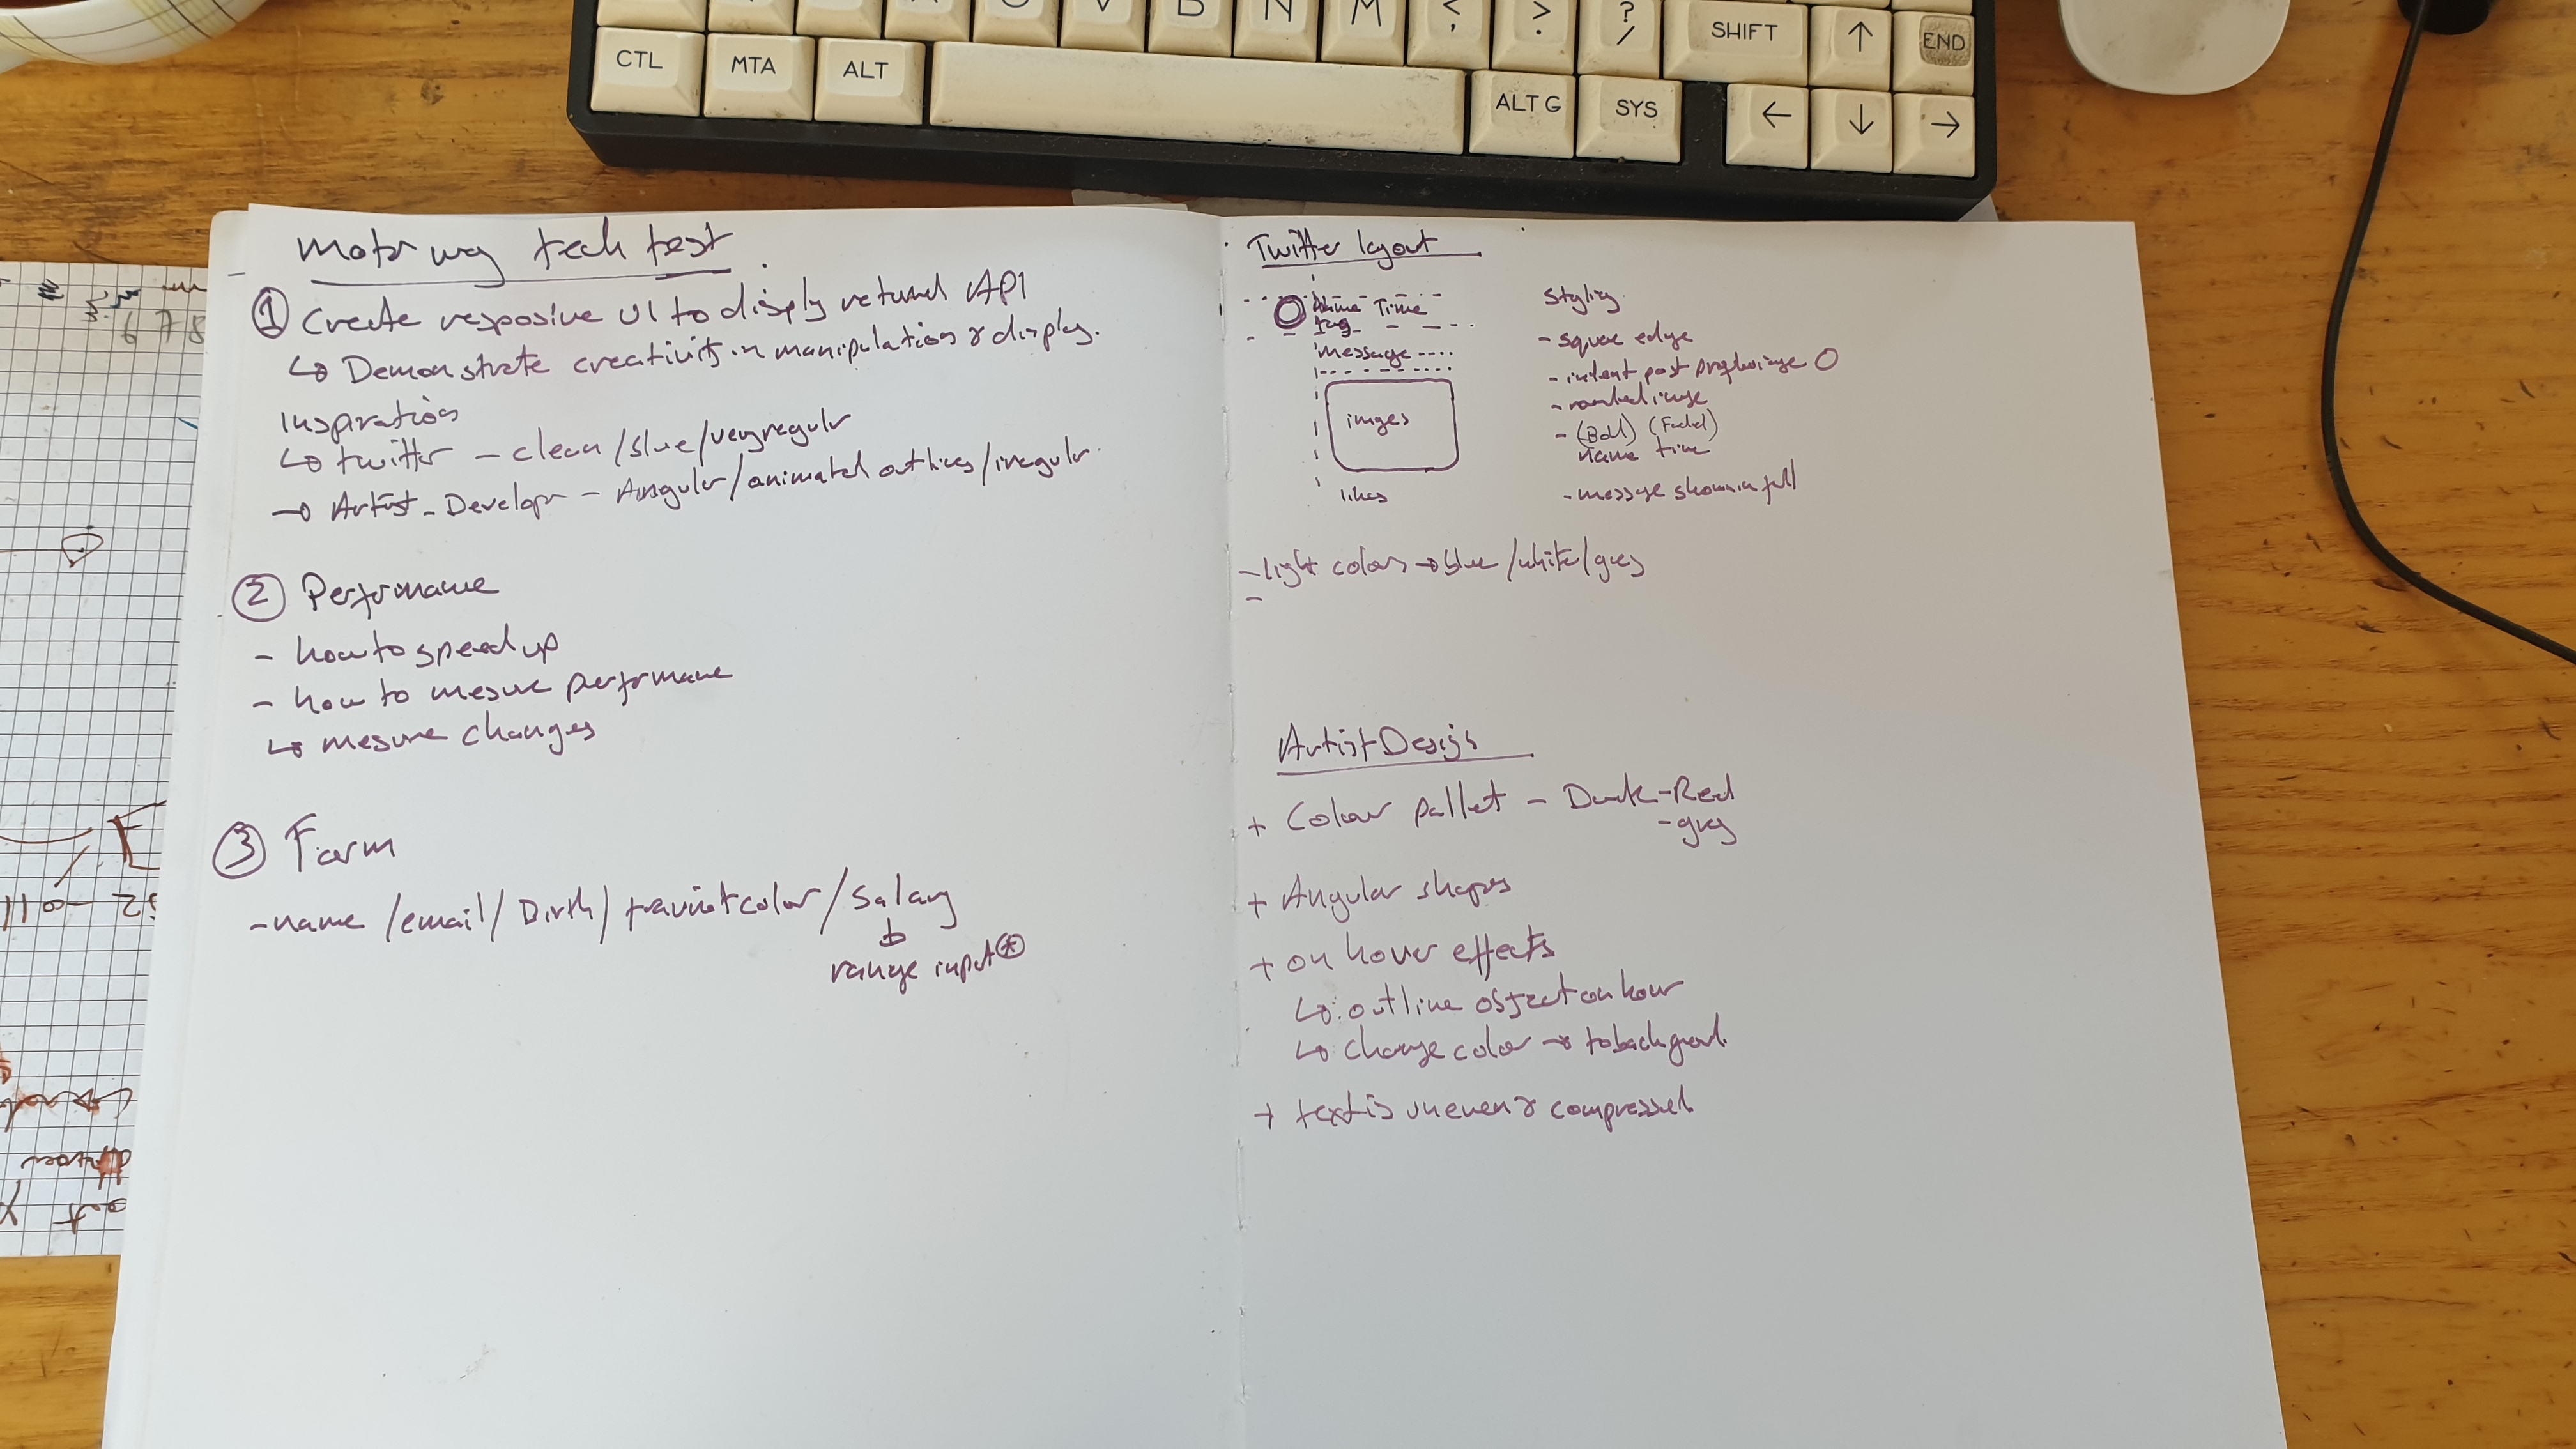 CTL
MTA
ALT
ALT G
SYS
SHIFT
END
V
N
M
<
,
>
.
?
/
↑
←
↓
→
tech test
① Create resposive UI to disply returnd API
↳ Demonstrate creativity in manipulation & display.
Inspiration
↳ twitter - clean/blue/very regulr
→ Artist - Develpr - Angulr/animated outlines/irregulr
② Perfrmance
- how to speed up
- how to mesure perfrmane
↳ mesure changes
③ Form
- name /email/ Birth/ favriot color / Salary
range input *
Twitter layout
Name Time
tag
message ----
images
likes
Styling
- square edge
- indent past profile image O
- rounded image
- (Bold) (Faded)
name time
- message shown in full
- light colors → blue /white/grey
-
Artist Design
+ Colour pallet - Dark - Red
- grey
+ Angular shapes
+ on hover effects
↳ outline object on hover
↳ change color → to background
+ text is uneven & compressed
6 7 8